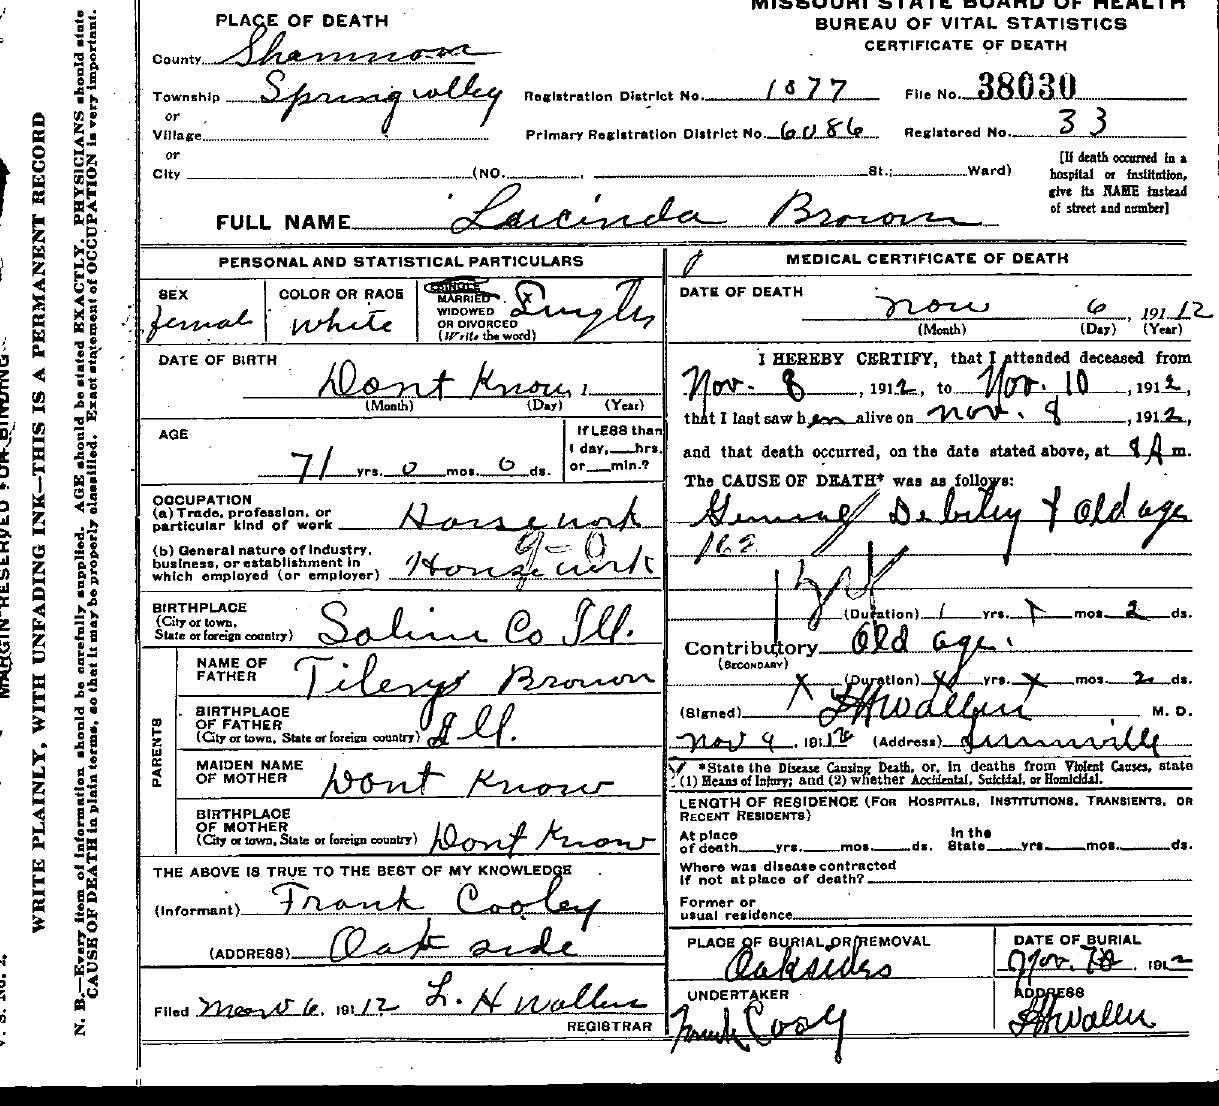 MISSOURI STATE BOARD OF HEALTH
BUREAU OF VITAL STATISTICS
CERTIFICATE OF DEATH
PLACE OF DEATH
County Shannon
Township Spring valley
or
Village
or
City (NO. , St.; Ward)
Registration District No. 1877 File No. 38030
Primary Registration District No. 6086 Registered No. 33
[If death occurred in a
hospital or institution,
give its NAME instead
of street and number]
FULL NAME Lucinda Brown
PERSONAL AND STATISTICAL PARTICULARS
SEX
female
COLOR OR RACE
White
SINGLE
MARRIED
WIDOWED
OR DIVORCED
(Write the word)
Single
DATE OF BIRTH
Dont Know, 1
(Month) (Day) (Year)
AGE
71 yrs. 0 mos. 0 ds.
If LESS than
1 day, hrs.
or min.?
OCCUPATION
(a) Trade, profession, or
particular kind of work House work
(b) General nature of Industry,
business, or establishment in
which employed (or employer) House work
BIRTHPLACE
(City or town,
State or foreign country) Saline Co Ill.
PARENTS
NAME OF
FATHER Brown
BIRTHPLACE
OF FATHER
(City or town, State or foreign country) Ill.
MAIDEN NAME
OF MOTHER Dont Know
BIRTHPLACE
OF MOTHER
(City or town, State or foreign country) Dont Know
THE ABOVE IS TRUE TO THE BEST OF MY KNOWLEDGE
(Informant) Frank Cooley
(ADDRESS) Oak side
Filed 6, 1912 L. H Wallen
REGISTRAR
MEDICAL CERTIFICATE OF DEATH
DATE OF DEATH
Nov 6, 1912
(Month) (Day) (Year)
I HEREBY CERTIFY, that I attended deceased from
Nov. 8, 1912, to Nov. 10, 1912,
that I last saw her alive on Nov. 8, 1912,
and that death occurred, on the date stated above, at 9 A m.
The CAUSE OF DEATH* was as follows:
General Debility & Old age
(Duration) yrs. mos. 2 ds.
Contributory Old age.
(SECONDARY)
(Duration) X yrs. X mos. 2 ds.
(Signed) LH Wallen, M. D.
Nov 9, 1912 (Address)
*State the Disease Causing Death, or, in deaths from Violent Causes, state
(1) Means of Injury; and (2) whether Accidental, Suicidal, or Homicidal.
LENGTH OF RESIDENCE (FOR HOSPITALS, INSTITUTIONS, TRANSIENTS, OR
RECENT RESIDENTS)
At place
of death yrs. mos. ds.
In the
State yrs. mos. ds.
Where was disease contracted
if not at place of death?
Former or
usual residence
PLACE OF BURIAL OR REMOVAL
Oaksides
DATE OF BURIAL
Nov. 1912
UNDERTAKER
Frank Cooly
ADDRESS
LH Wallen
MARGIN RESERVED FOR BINDING
WRITE PLAINLY, WITH UNFADING INK—THIS IS A PERMANENT RECORD
N. B.—Every item of information should be carefully supplied. AGE should be stated EXACTLY. PHYSICIANS should state
CAUSE OF DEATH in plain terms, so that it may be properly classified. Exact statement of OCCUPATION is very important.